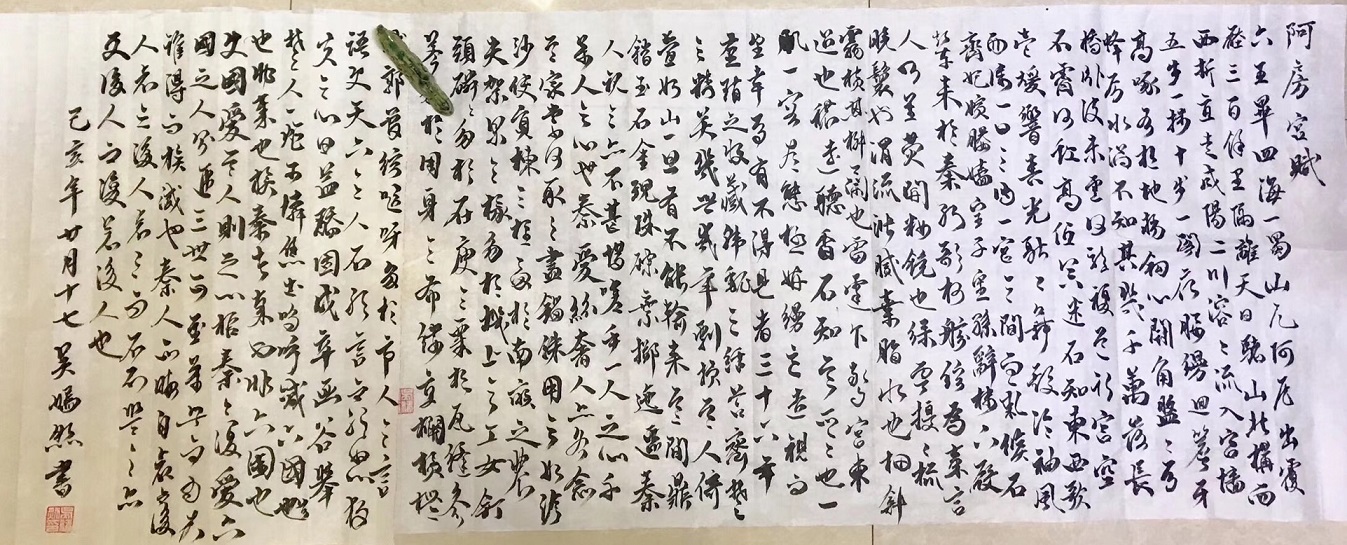 阿房宮賦
六王畢四海一蜀山兀阿房出覆
壓三百餘里隔離天日驪山北構而
西折直走咸陽二川溶〻流入宮墻
五步一樓十步一閣廊腰縵迴簷牙
高啄各抱地勢鉤心鬥角盤〻焉
蜂房水渦不知其幾千萬落長
橋卧波未雲何龍複道行空
不霽何虹高低冥迷不知東西歌
臺暖響春光融〻舞殿冷袖風
雨一日之內一宮之間而氣候不
齊妃嬪媵嬙王子皇孫辭樓下殿
輦來於秦朝歌夜絃為秦宮
人明星熒開粧鏡也綠雲擾〻梳
曉鬟也渭流漲膩棄脂水也烟斜
霧橫焚椒蘭也雷霆乍驚宮車
過也轆遠聽杳不知其所之也一
肌一容盡態極妍縵立遠視而
望幸焉有不得見者三十六年
燕趙之收藏韓魏之經營齊楚
之精英幾世幾年剽掠其人倚
疊如山一旦有不能輸來其間鼎
鐺玉石金塊珠礫棄擲迤邐秦
人視之亦不甚惜嗟乎一人之心千
萬人之心也秦愛紛奢人亦念
其家奈何取之盡錙銖用之如泥
沙使負棟之柱多於南畝之農
夫架梁之椽多於機上之工女釘
頭磷〻多於在庾之粟粒瓦縫參
差多於周身之帛縷直欄橫檻
郭管絃嘔啞多於市人之言
語使天下之人不敢言而敢怒獨
夫之心日益驕固戍卒叫函谷舉
楚人一炬可憐焦土嗚呼滅六國者
也非秦也族秦者秦也非六國也
使國愛其人則足以拒秦〻復愛六
國之人則遞三世可至萬世而為君
誰得而族滅也秦人不暇自哀後
人哀之後人哀之而不鑒之亦
使後人而復哀後人也
己亥年廿月十七 吴嫣然書